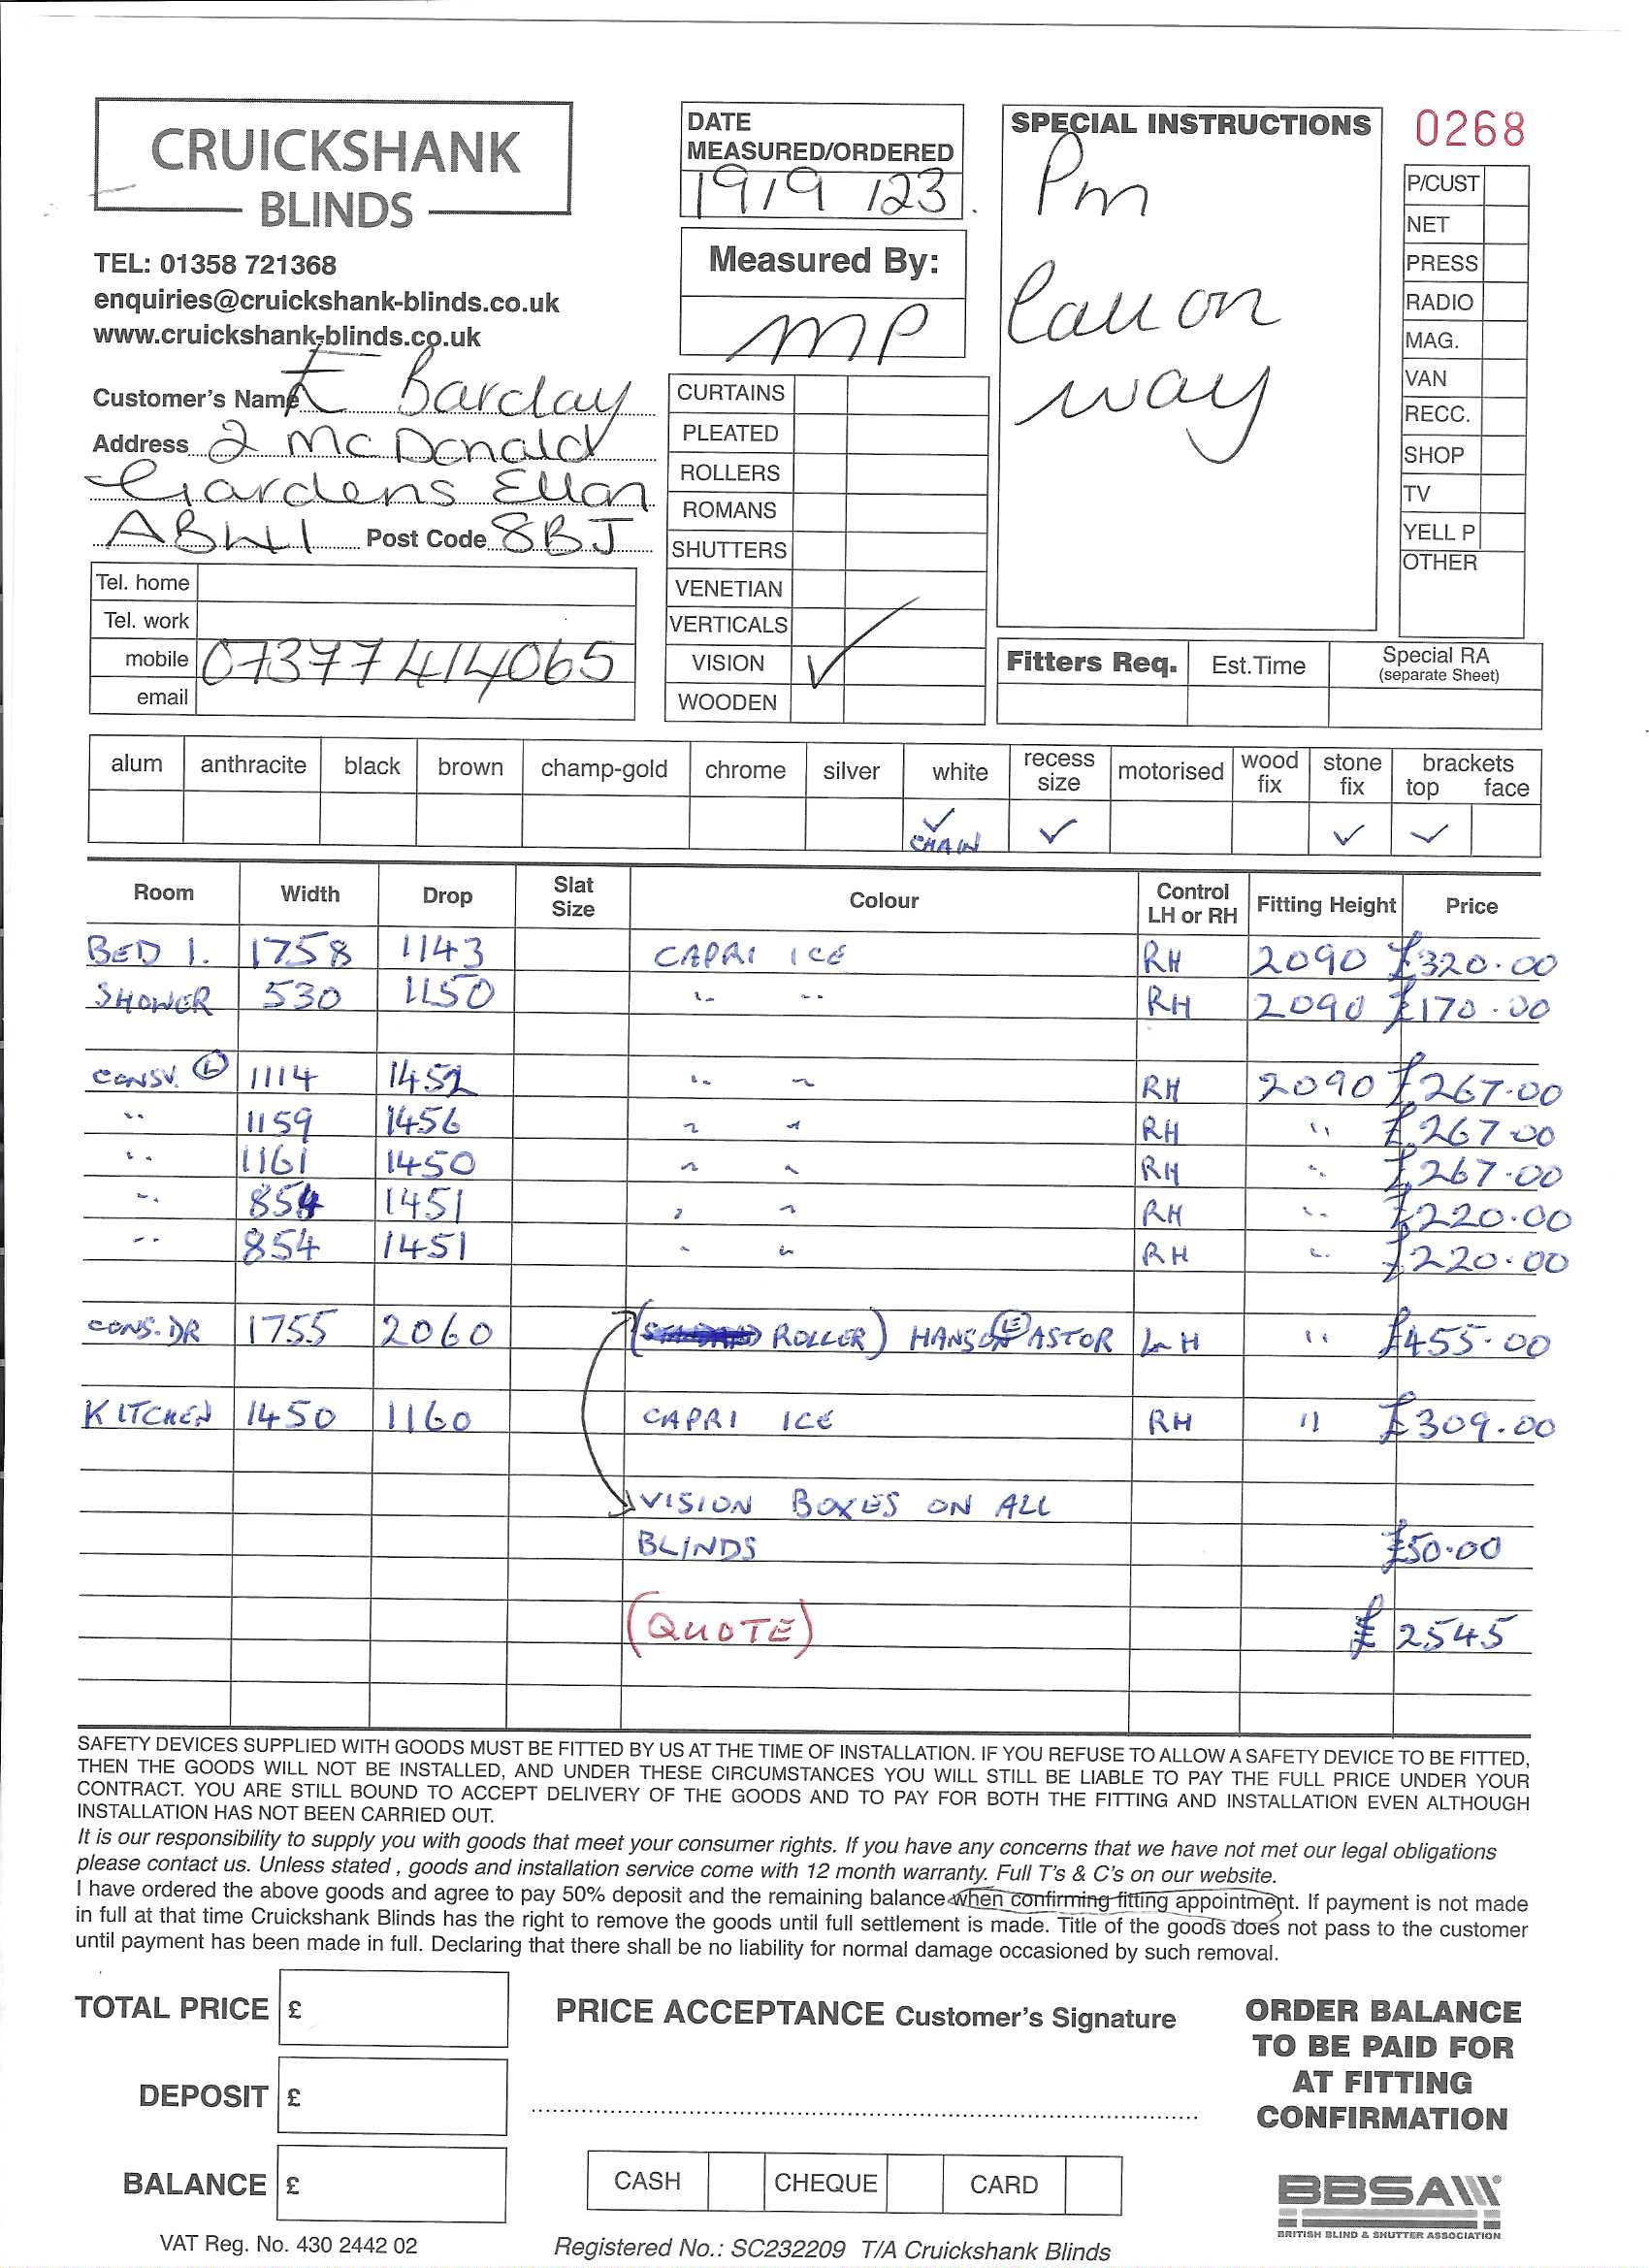 CRUICKSHANK
BLINDS
TEL: 01358 721368
enquiries@cruickshank-blinds.co.uk
www.cruickshank-blinds.co.uk
Customer's Name E Barclay
Address 2 McDonald
Gardens Ellon
AB41 Post Code 8BJ
Tel. home
Tel. work
mobile 07377414065
email
DATE
MEASURED/ORDERED
19/9/23
Measured By:
MP
CURTAINS
PLEATED
ROLLERS
ROMANS
SHUTTERS
VENETIAN
VERTICALS
VISION ✓
WOODEN
SPECIAL INSTRUCTIONS
Pm
Call on
way
0268
P/CUST
NET
PRESS
RADIO
MAG.
VAN
RECC.
SHOP
TV
YELL P
OTHER
Fitters Req. Est.Time Special RA
(separate Sheet)
alum anthracite black brown champ-gold chrome silver white recess size motorised wood fix stone fix brackets top face
✓ ✓ ✓ ✓
CHAIN
Room Width Drop Slat Size Colour Control LH or RH Fitting Height Price
BED 1. 1758 1143 CAPRI ICE RH 2090 £320.00
SHOWER 530 1150 " " RH 2090 £170.00
CONSV. L 1114 1452 " " RH 2090 £267.00
" 1159 1456 " " RH " £267.00
" 1161 1450 " " RH " £267.00
" 854 1451 " " RH " £220.00
" 854 1451 " " RH " £220.00
CONS.DR 1755 2060 ( ROLLER) HANSON LE ASTOR LH " £455.00
KITCHEN 1450 1160 CAPRI ICE RH " £309.00
VISION BOXES ON ALL
BLINDS £50.00
(QUOTE) £2545
SAFETY DEVICES SUPPLIED WITH GOODS MUST BE FITTED BY US AT THE TIME OF INSTALLATION. IF YOU REFUSE TO ALLOW A SAFETY DEVICE TO BE FITTED,
THEN THE GOODS WILL NOT BE INSTALLED, AND UNDER THESE CIRCUMSTANCES YOU WILL STILL BE LIABLE TO PAY THE FULL PRICE UNDER YOUR
CONTRACT. YOU ARE STILL BOUND TO ACCEPT DELIVERY OF THE GOODS AND TO PAY FOR BOTH THE FITTING AND INSTALLATION EVEN ALTHOUGH
INSTALLATION HAS NOT BEEN CARRIED OUT.
It is our responsibility to supply you with goods that meet your consumer rights. If you have any concerns that we have not met our legal obligations
please contact us. Unless stated , goods and installation service come with 12 month warranty. Full T's & C's on our website.
I have ordered the above goods and agree to pay 50% deposit and the remaining balance when confirming fitting appointment. If payment is not made
in full at that time Cruickshank Blinds has the right to remove the goods until full settlement is made. Title of the goods does not pass to the customer
until payment has been made in full. Declaring that there shall be no liability for normal damage occasioned by such removal.
TOTAL PRICE £
DEPOSIT £
BALANCE £
PRICE ACCEPTANCE Customer's Signature
CASH CHEQUE CARD
ORDER BALANCE
TO BE PAID FOR
AT FITTING
CONFIRMATION
BBSA
BRITISH BLIND & SHUTTER ASSOCIATION
VAT Reg. No. 430 2442 02
Registered No.: SC232209 T/A Cruickshank Blinds